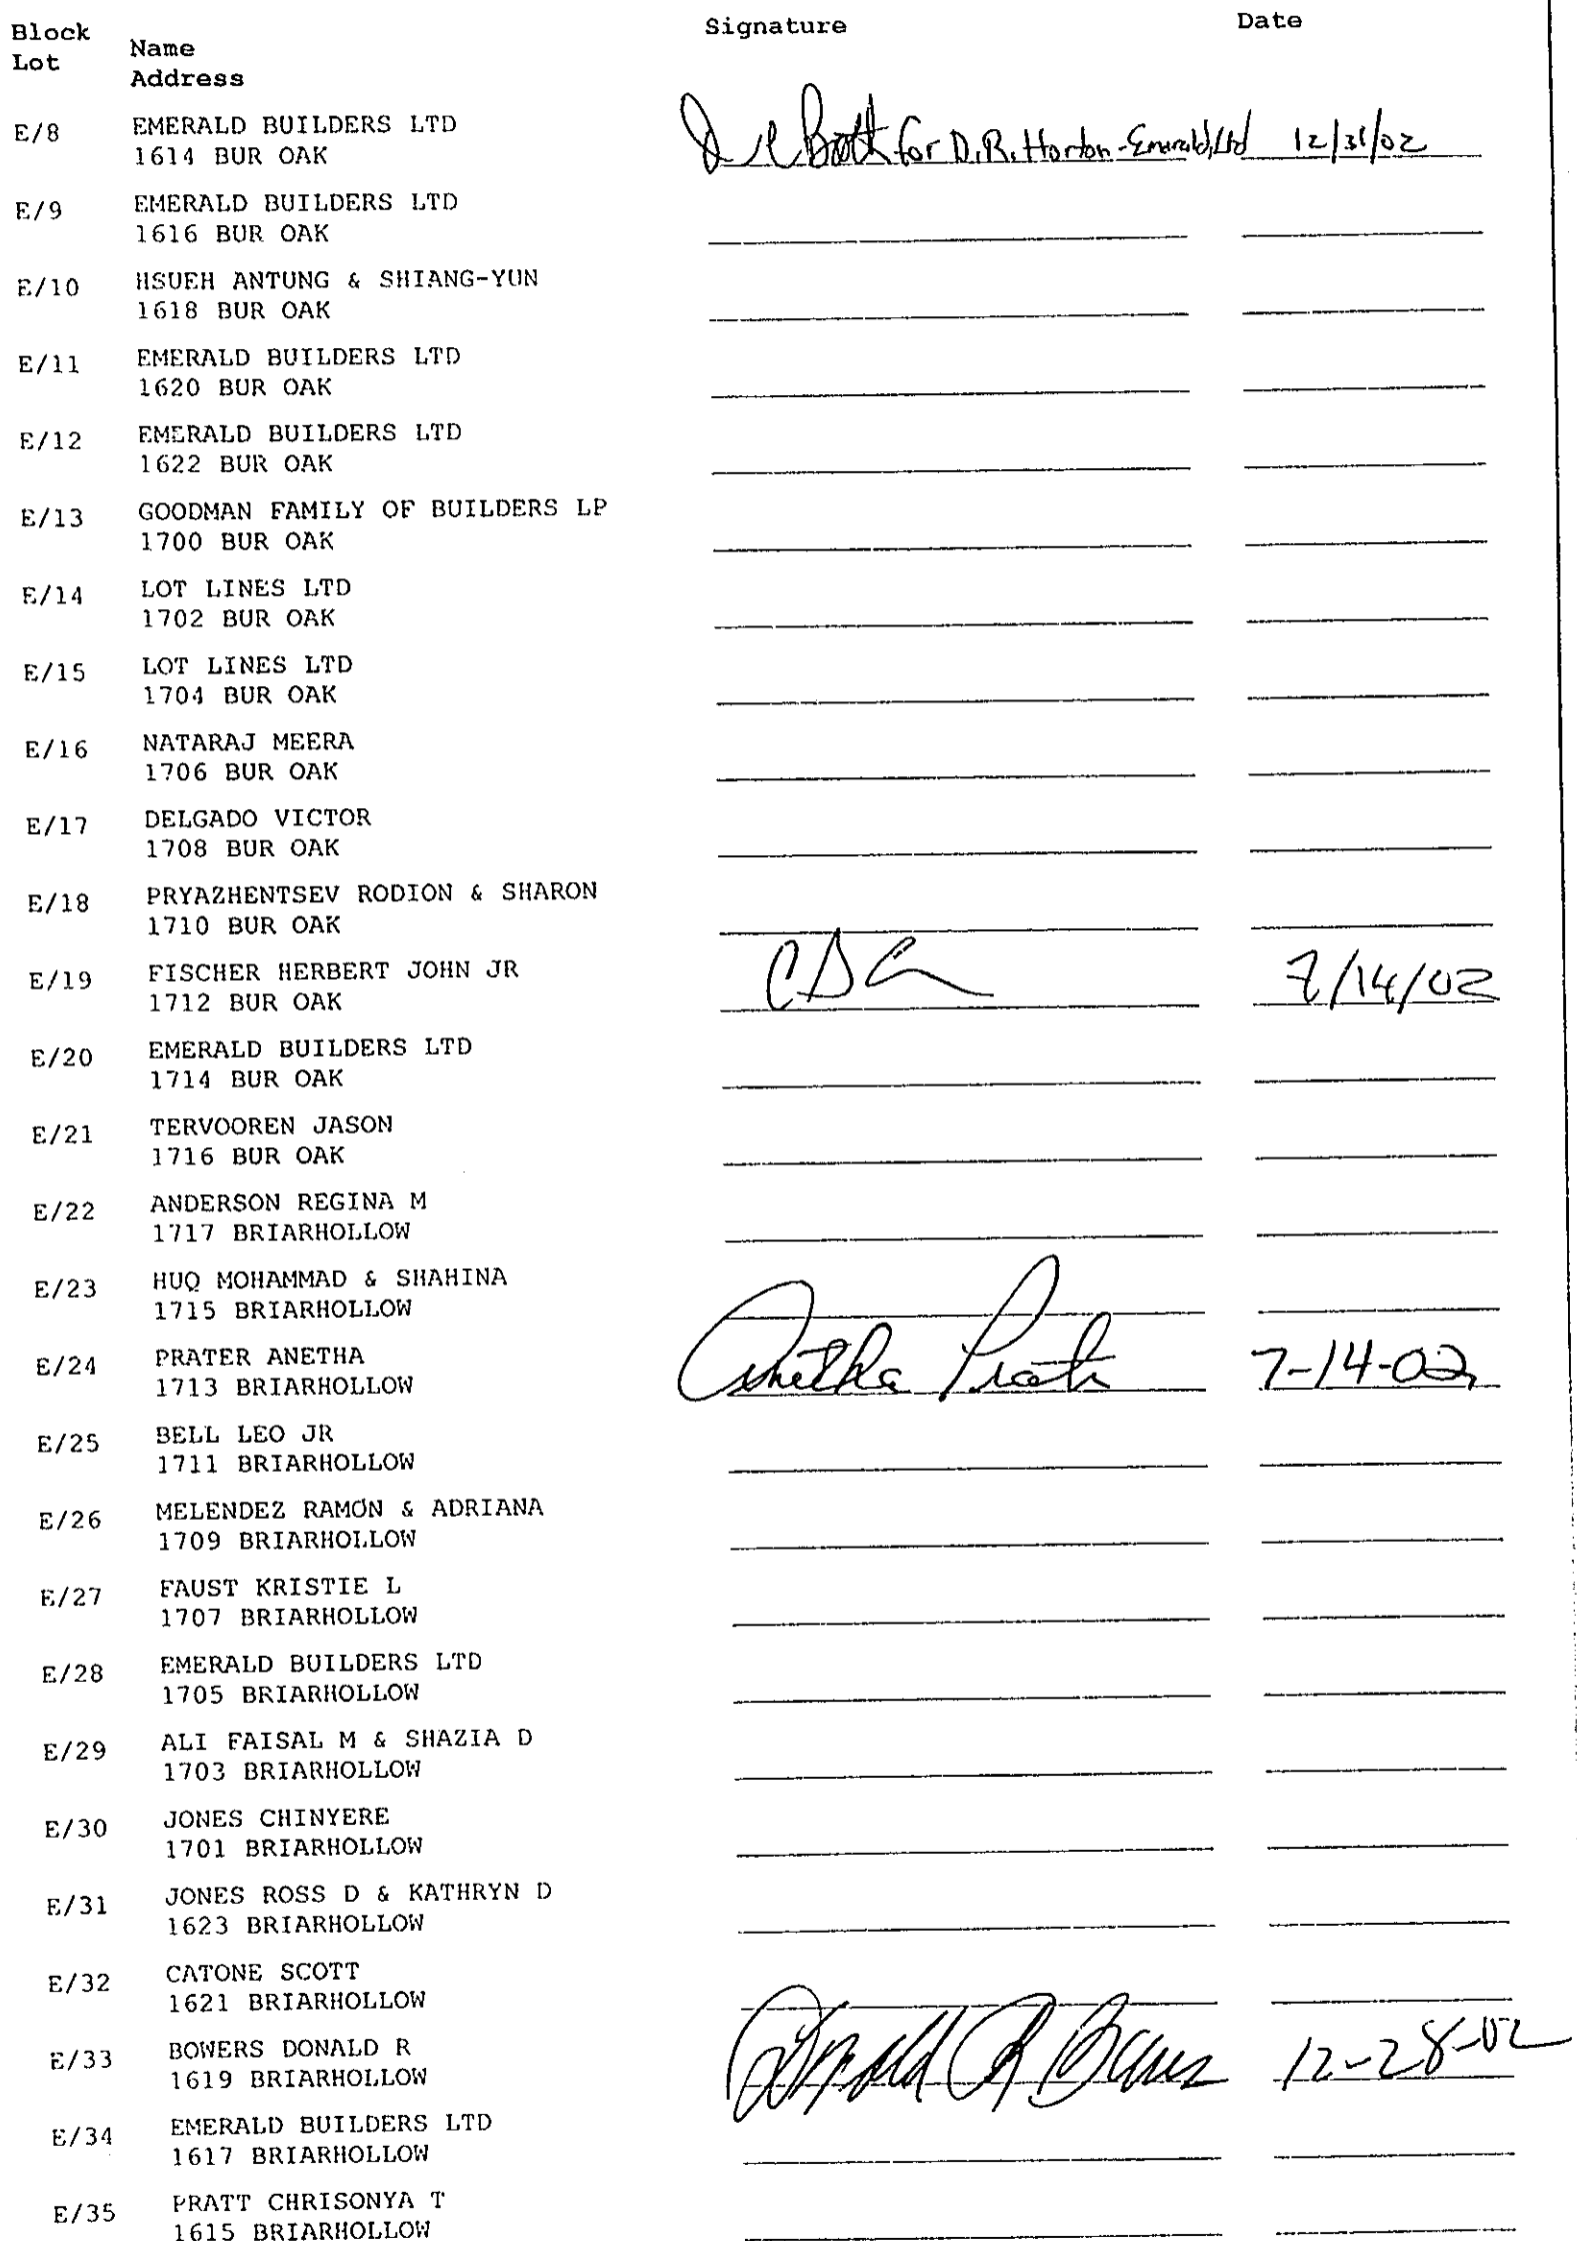 Block
Lot
Name
Address
Signature
Date
E/8 EMERALD BUILDERS LTD
1614 BUR OAK
for D.R. Horton-Emerald, Ltd 12/31/02
E/9 EMERALD BUILDERS LTD
1616 BUR OAK
E/10 HSUEH ANTUNG & SHIANG-YUN
1618 BUR OAK
E/11 EMERALD BUILDERS LTD
1620 BUR OAK
E/12 EMERALD BUILDERS LTD
1622 BUR OAK
E/13 GOODMAN FAMILY OF BUILDERS LP
1700 BUR OAK
E/14 LOT LINES LTD
1702 BUR OAK
E/15 LOT LINES LTD
1704 BUR OAK
E/16 NATARAJ MEERA
1706 BUR OAK
E/17 DELGADO VICTOR
1708 BUR OAK
E/18 PRYAZHENTSEV RODION & SHARON
1710 BUR OAK
E/19 FISCHER HERBERT JOHN JR
1712 BUR OAK 7/14/02
E/20 EMERALD BUILDERS LTD
1714 BUR OAK
E/21 TERVOOREN JASON
1716 BUR OAK
E/22 ANDERSON REGINA M
1717 BRIARHOLLOW
E/23 HUQ MOHAMMAD & SHAHINA
1715 BRIARHOLLOW
E/24 PRATER ANETHA
1713 BRIARHOLLOW Anetha Prater 7-14-02
E/25 BELL LEO JR
1711 BRIARHOLLOW
E/26 MELENDEZ RAMON & ADRIANA
1709 BRIARHOLLOW
E/27 FAUST KRISTIE L
1707 BRIARHOLLOW
E/28 EMERALD BUILDERS LTD
1705 BRIARHOLLOW
E/29 ALI FAISAL M & SHAZIA D
1703 BRIARHOLLOW
E/30 JONES CHINYERE
1701 BRIARHOLLOW
E/31 JONES ROSS D & KATHRYN D
1623 BRIARHOLLOW
E/32 CATONE SCOTT
1621 BRIARHOLLOW
E/33 BOWERS DONALD R
1619 BRIARHOLLOW Donald R Bowers 12-28-02
E/34 EMERALD BUILDERS LTD
1617 BRIARHOLLOW
E/35 PRATT CHRISONYA T
1615 BRIARHOLLOW